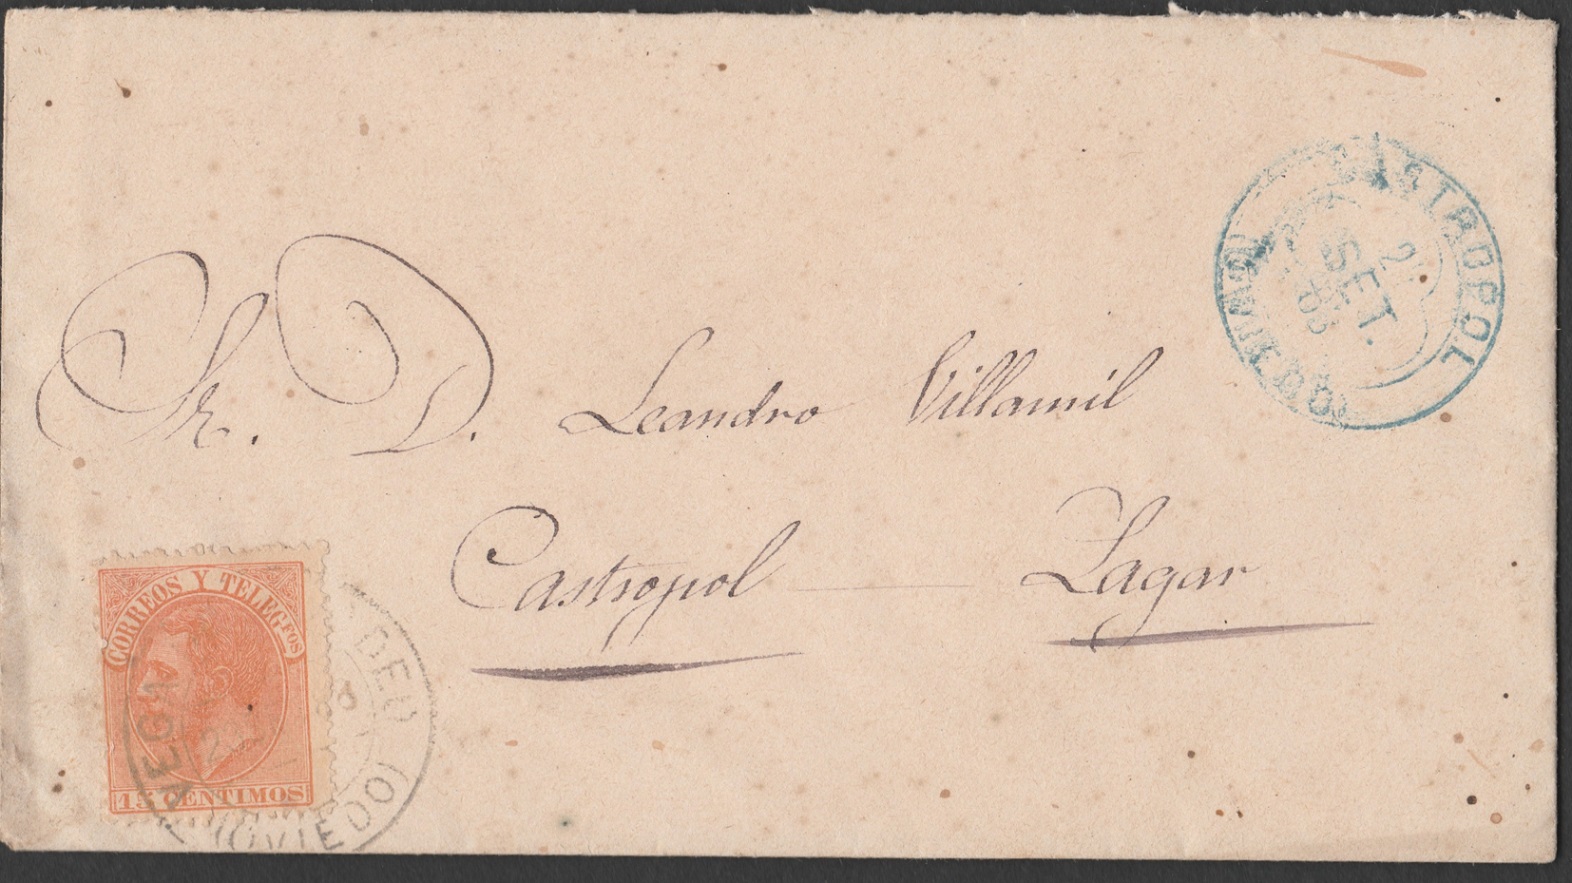 CASTROPOL
2
SET.
Sr. D. Leandro Villamil
Castropol — Lagar
CORREOS Y TELEGFOS
15 CENTIMOS
VEGA DEO
(OVIEDO)